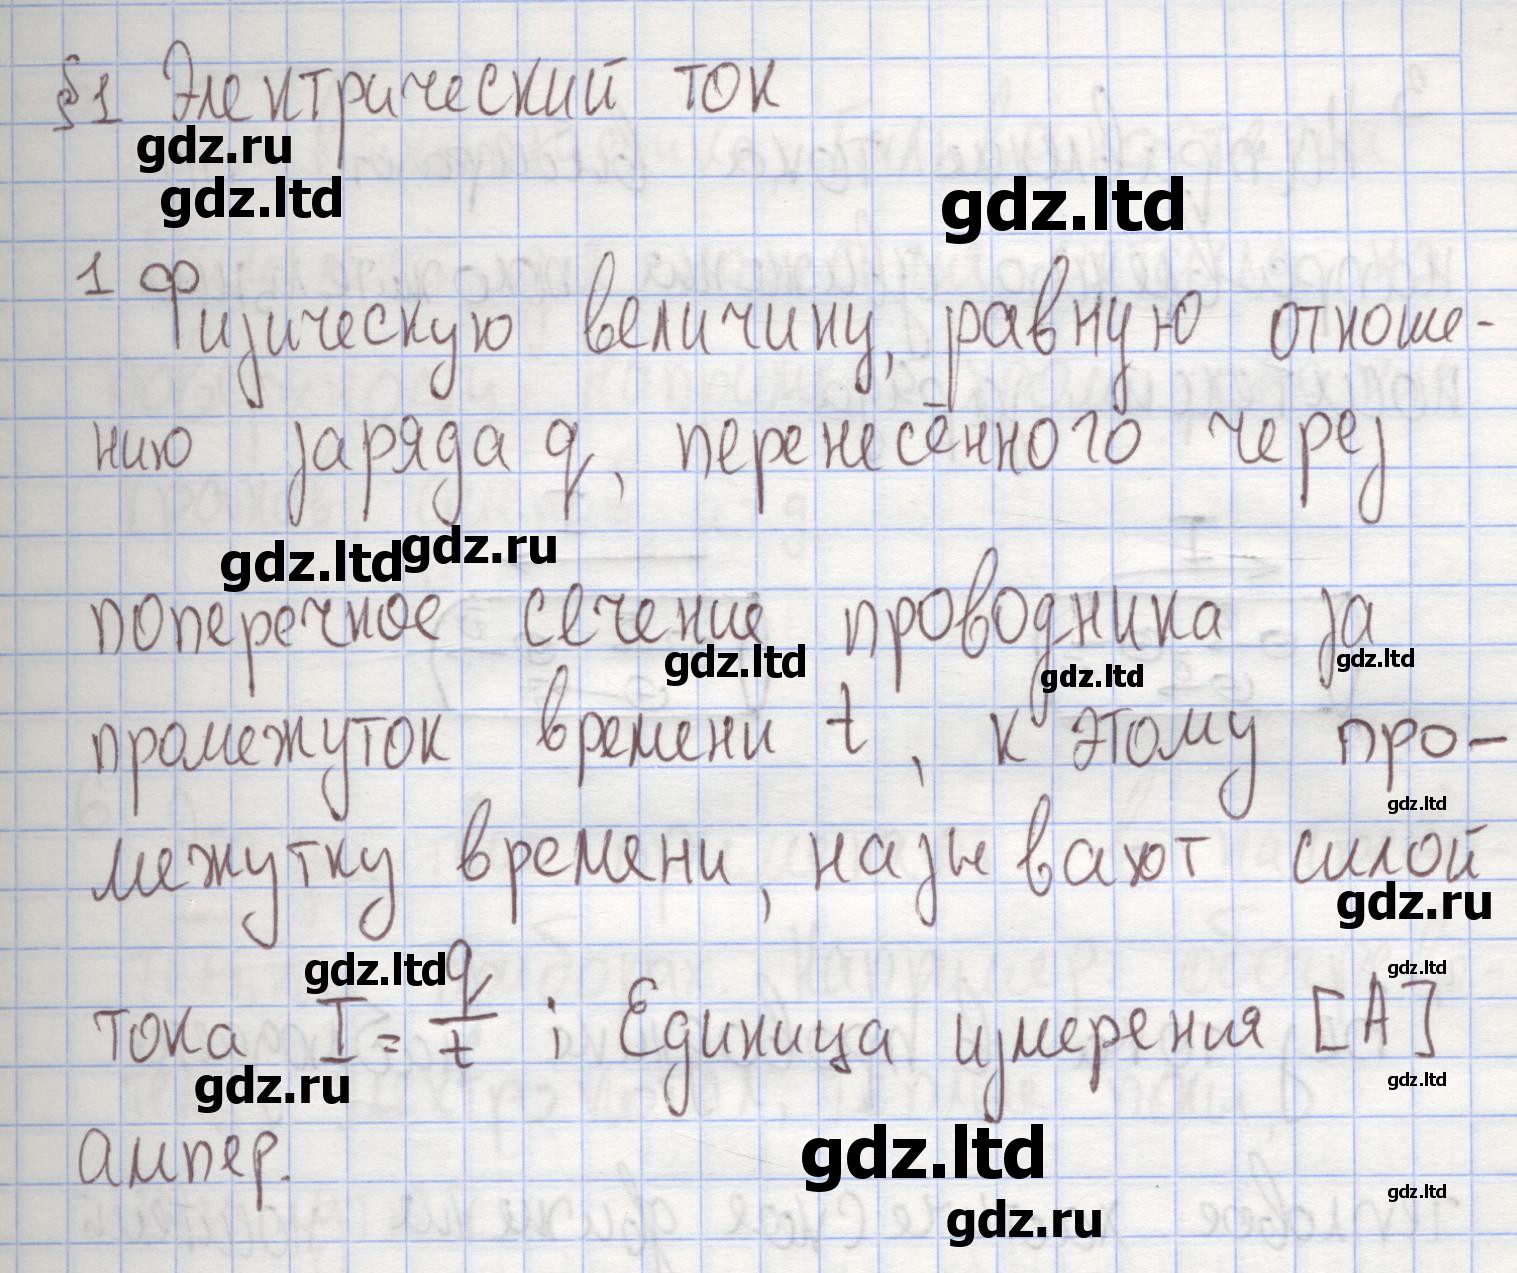 §1 Электрический ток
gdz.ru
gdz.ltd
gdz.ltd
1 Физическую величину, равную отноше-
нию заряда q, перенесённого через
gdz.ltd gdz.ru
поперечное сечение проводника за
gdz.ltd gdz.ltd gdz.ltd
промежуток времени t, к этому про-
gdz.ltd
межутку времени, называют силой
gdz.ru
gdz.ltd gdz.ltd
тока I = q/t ; Единица измерения [A]
gdz.ru gdz.ltd
ампер.
gdz.ltd
gdz.ltd
gdz.ru